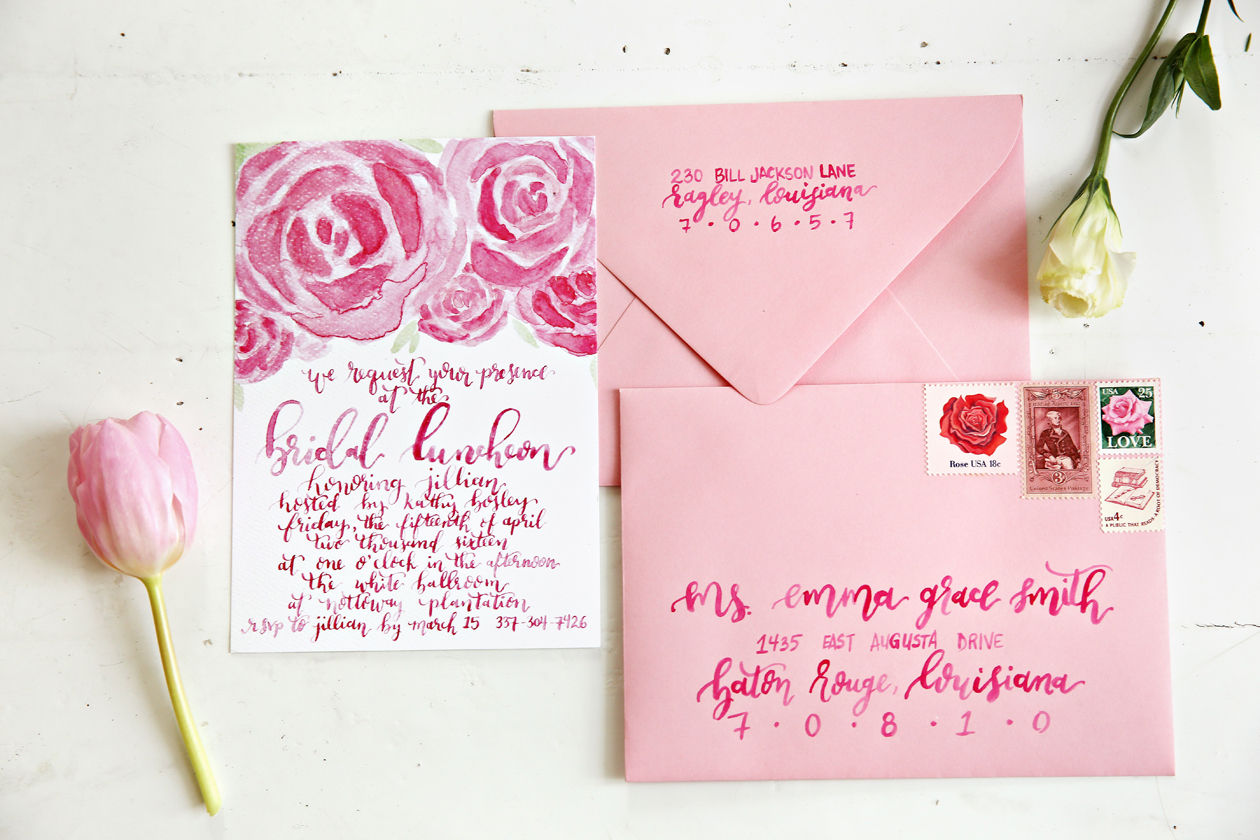 we request your presence
at the
bridal luncheon
honoring jillian
hosted by kathy hosley
friday, the fifteenth of april
two thousand sixteen
at one o'clock in the afternoon
the white ballroom
at nottoway plantation
rsvp to jillian by march 15 337-304-7426
230 BILL JACKSON LANE
Ragley, louisiana
7 · 0 · 6 · 5 · 7
Rose USA 18c
3
United States Postage
USA 25
LOVE
USA 4c
A PUBLIC THAT READS A ROOT OF DEMOCRACY
ms. emma grace smith
1435 EAST AUGUSTA DRIVE
baton rouge, louisiana
7 · 0 · 8 · 1 · 0